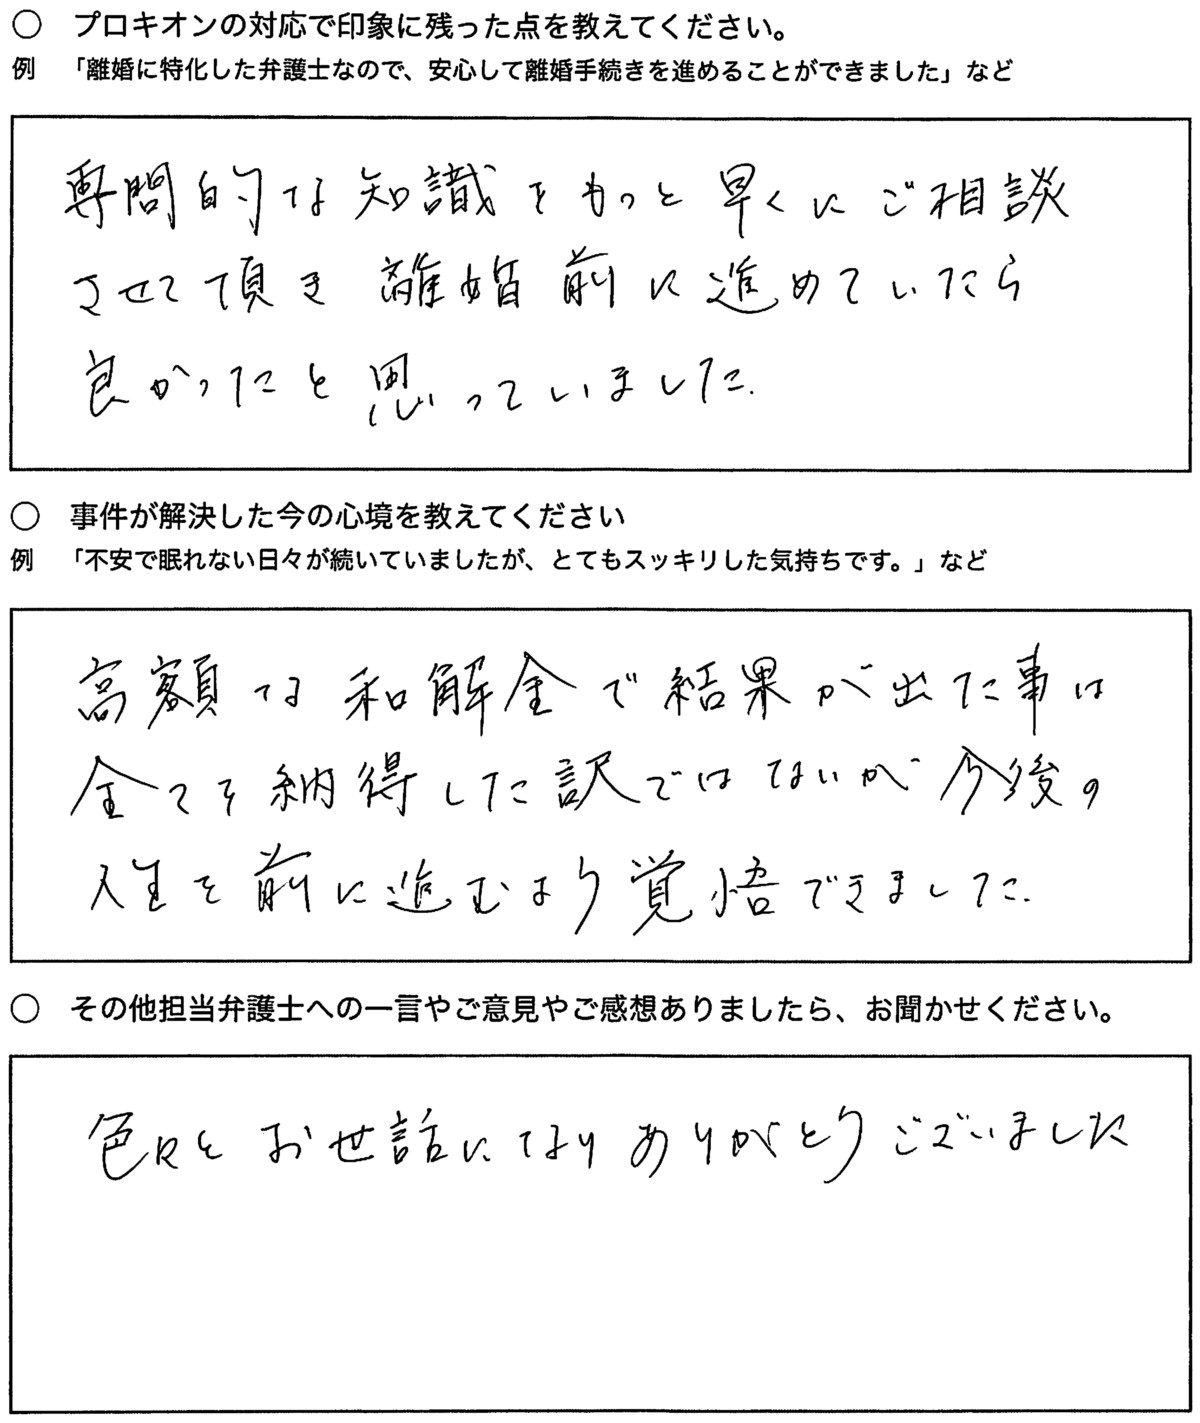 ○ プロキオンの対応で印象に残った点を教えてください。
例 「離婚に特化した弁護士なので、安心して離婚手続きを進めることができました」など
専問的な知識をもっと早くにご相談
させて頂き離婚前に進めていたら
良かったと思っていました.
○ 事件が解決した今の心境を教えてください
例 「不安で眠れない日々が続いていましたが、とてもスッキリした気持ちです。」など
高額な和解金で結果が出た事は
全てを納得した訳ではないが今後の
人生を前に進むより覚悟できました.
○ その他担当弁護士への一言やご意見やご感想ありましたら、お聞かせください。
色々とお世話になりありがとうございました